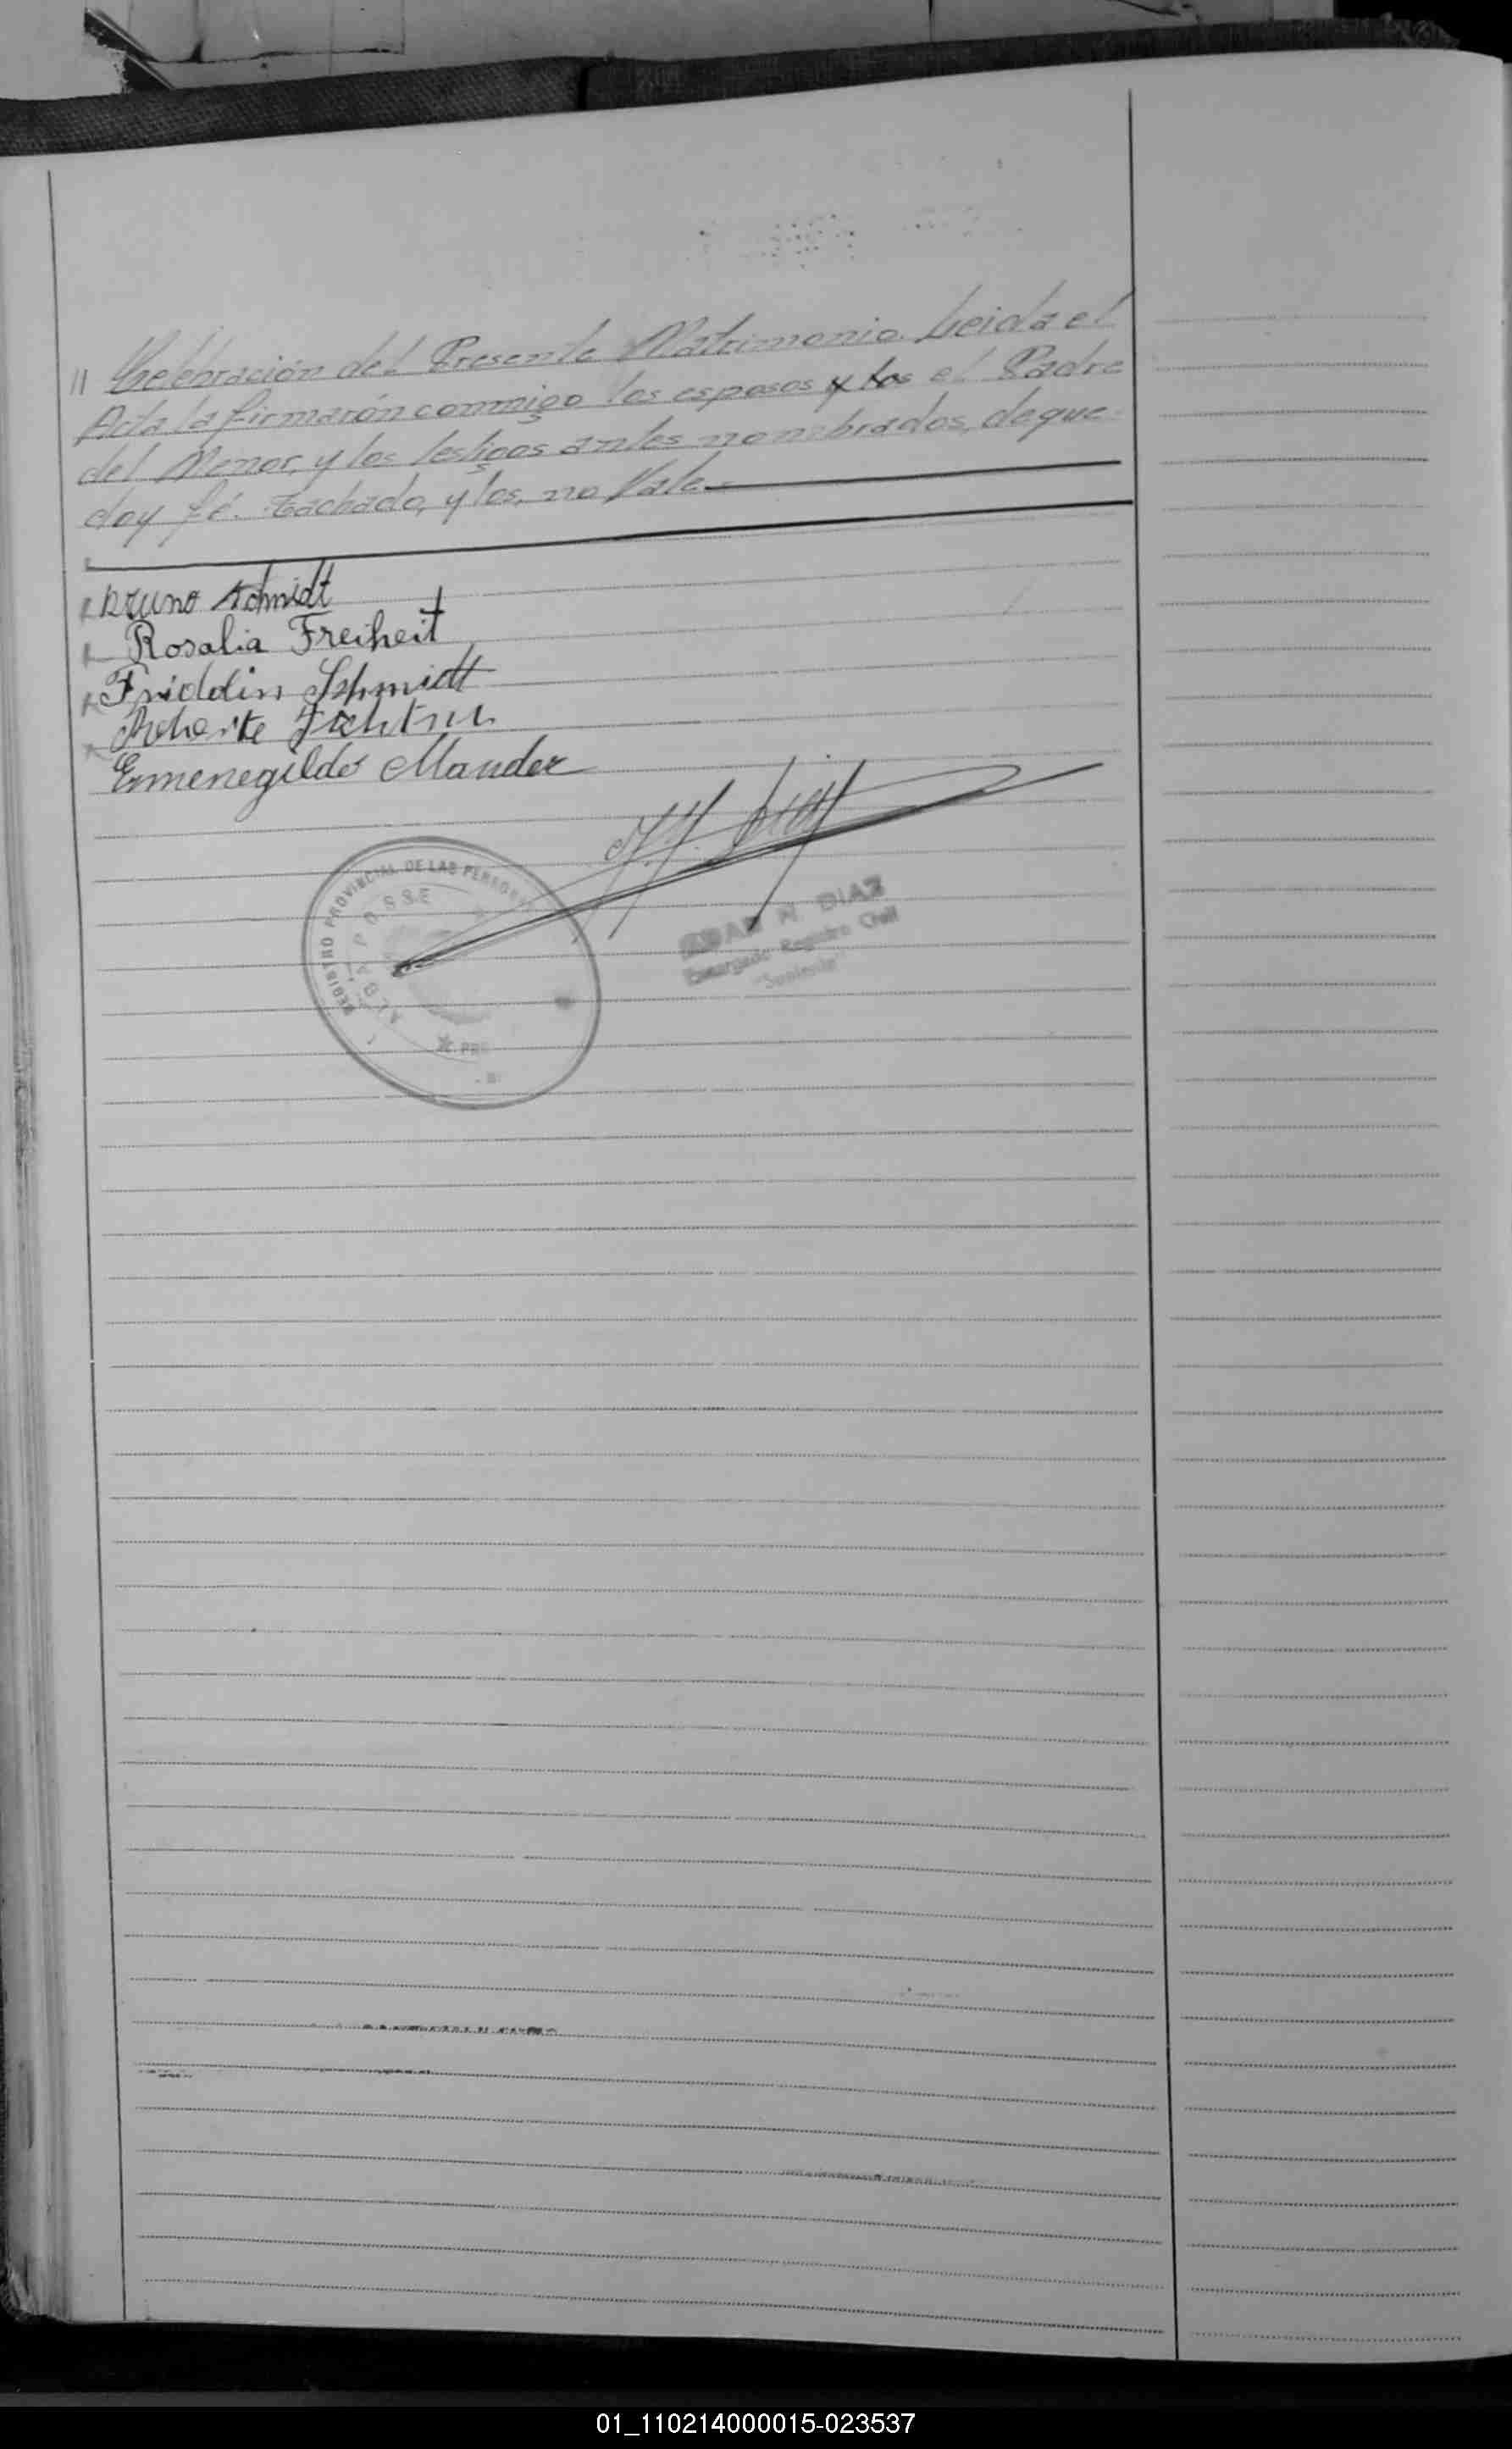 // Celebración del Presente Matrimonio. Leida el
Acta la firmarón conmigo los esposos y los el Padre
del Menor, y los testigos antes nombrados, de que
doy fé. Tachado, y los, no Vale.
Bruno Schmidt
Rosalia Freiheit
Fridolin Schmidt
Ermenegildo Mander
REGISTRO PROVINCIAL DE LAS PERSO
ALBA POSSE
N DIAZ
Encargado Registro Civil
"Suplente"
01_110214000015-023537